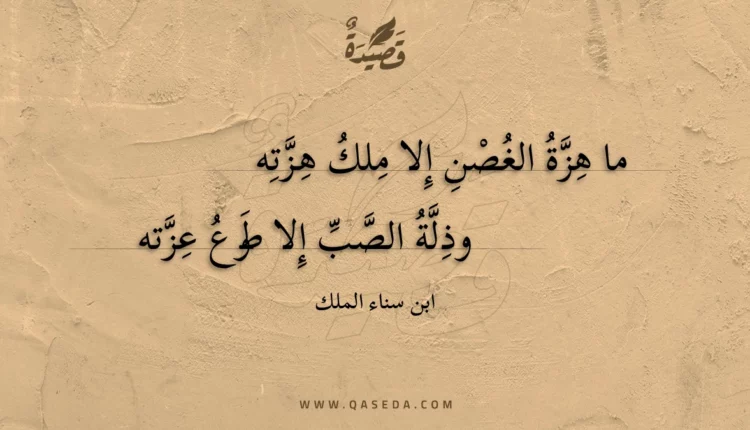 قَصِيْدَةٌ
ما هِزَّةُ الغُصْنِ إِلا مِلكُ هِزَّتِه
وذِلَّةُ الصَّبِّ إِلا طَوعُ عِزَّته
ابن سناء الملك
WWW.QASEDA.COM